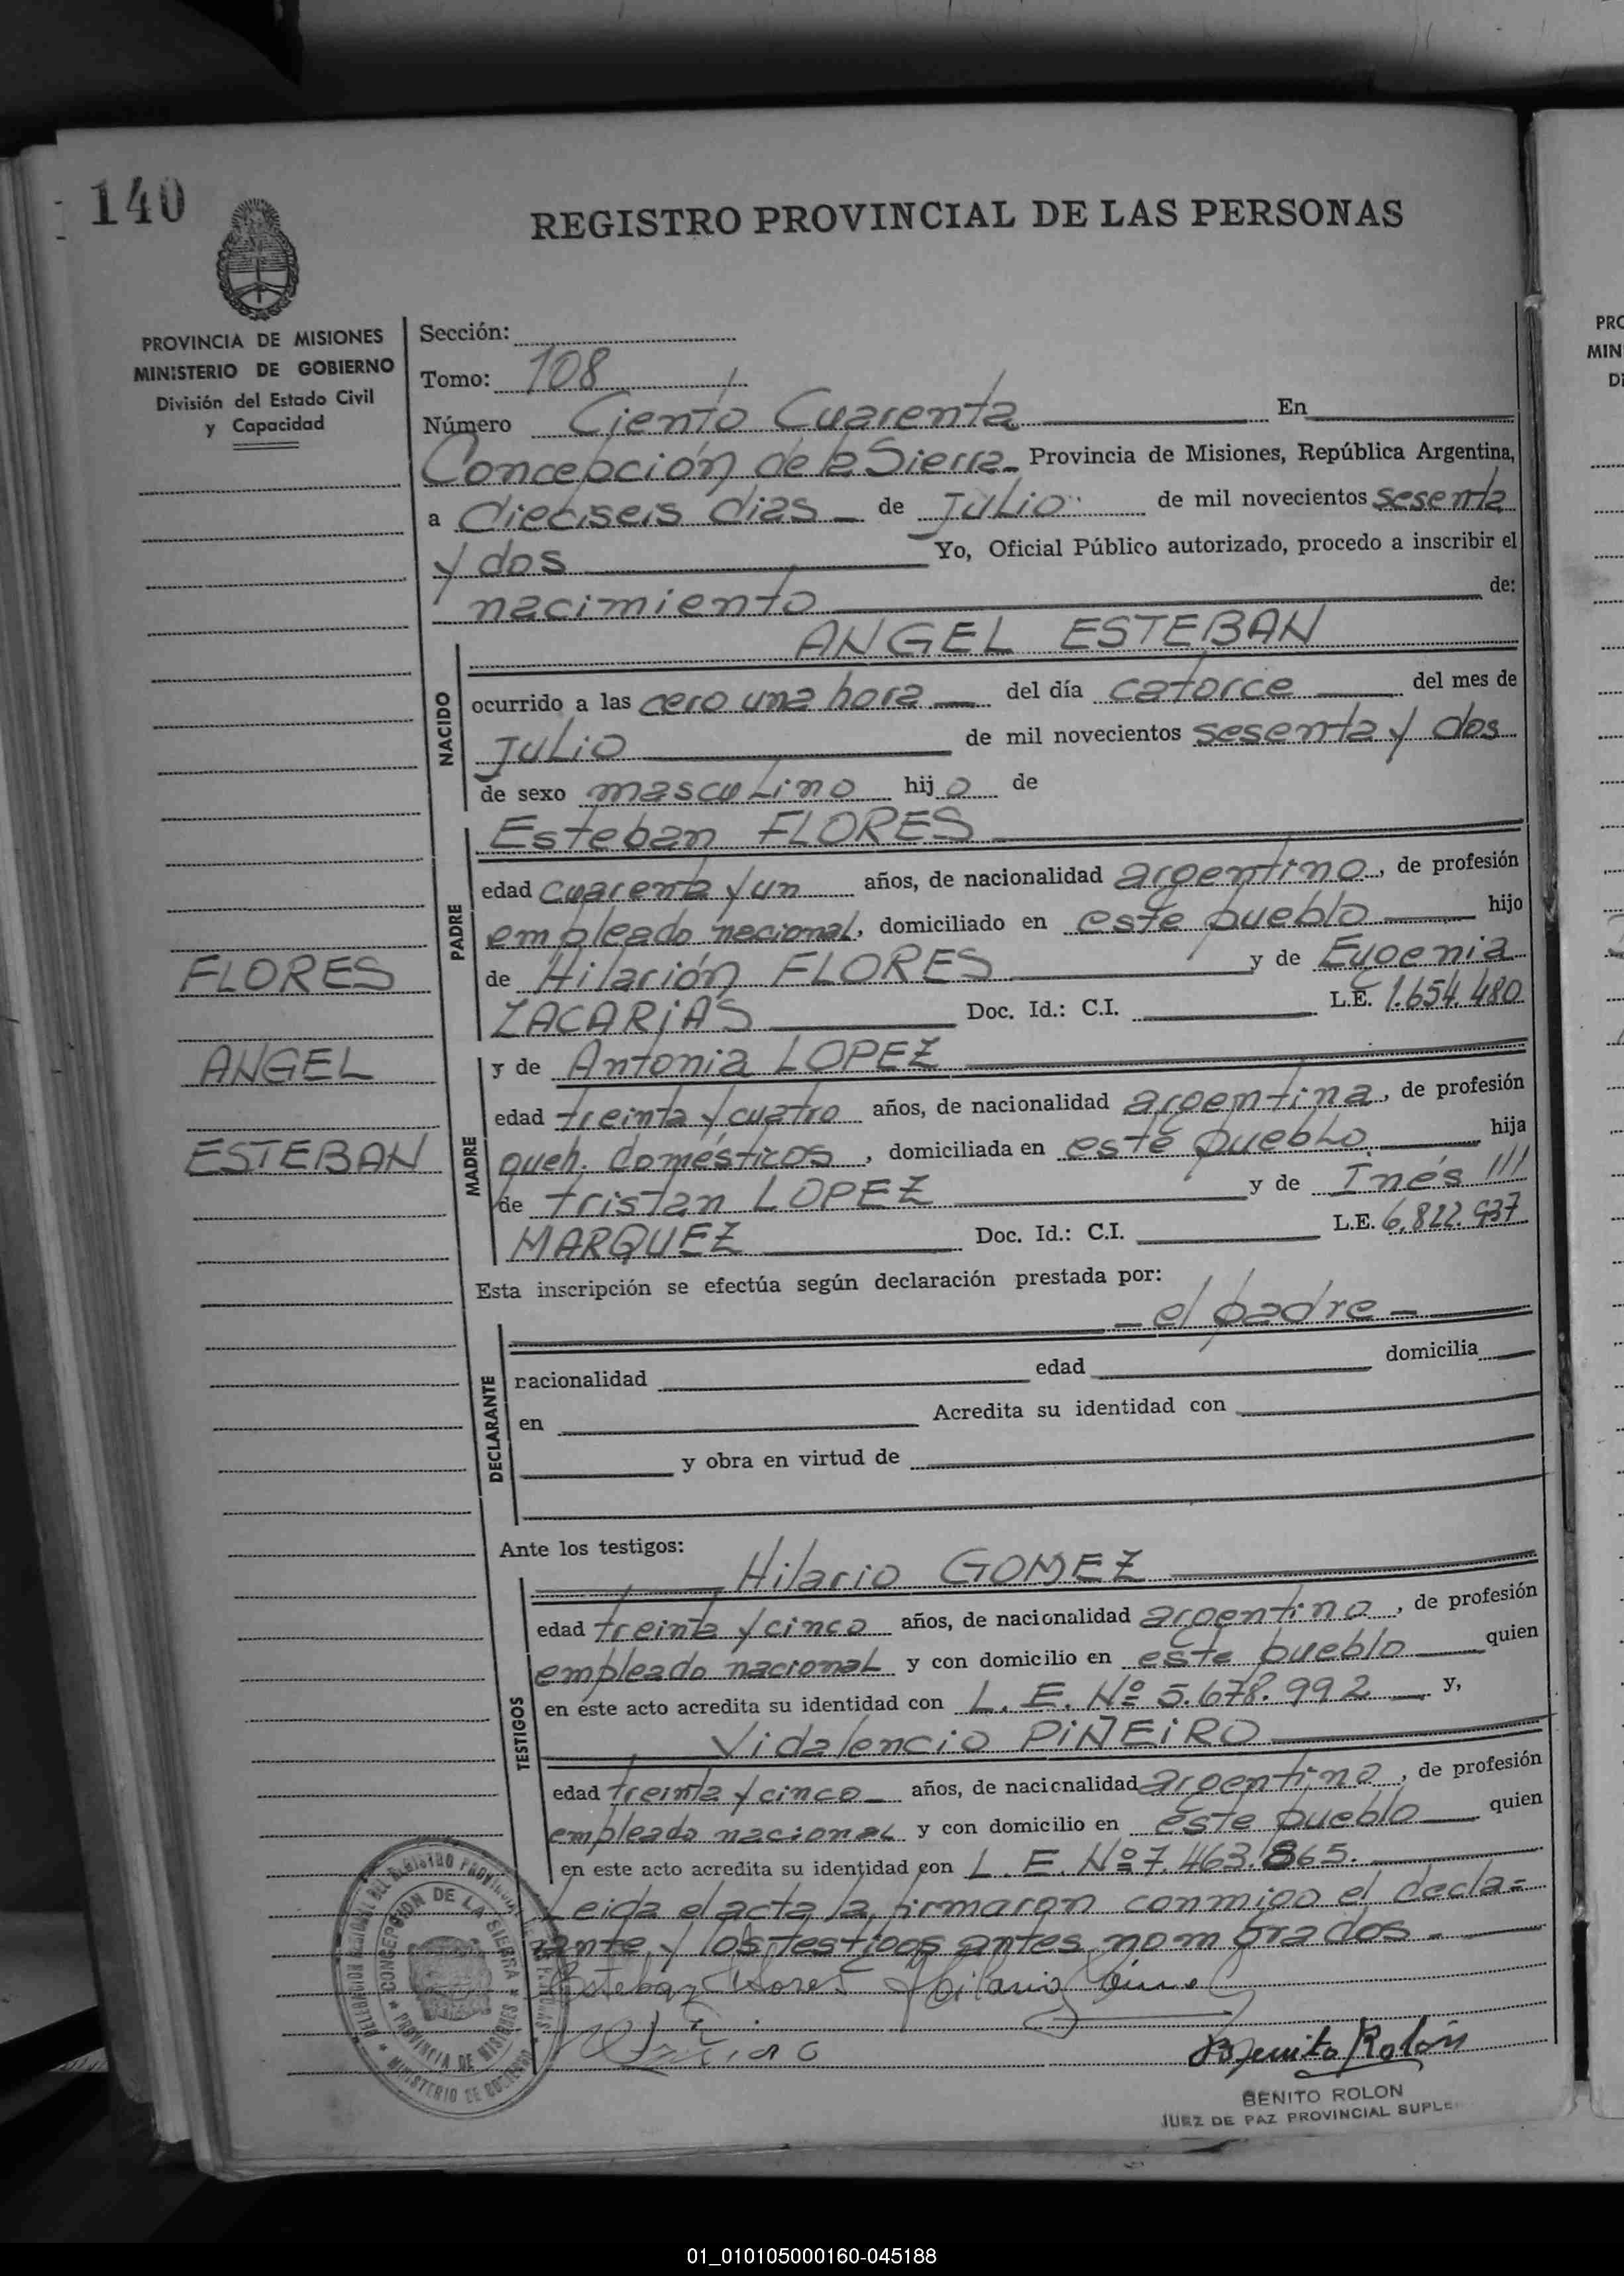 140
REGISTRO PROVINCIAL DE LAS PERSONAS
PROVINCIA DE MISIONES
MINISTERIO DE GOBIERNO
División del Estado Civil
y Capacidad
Sección:
Tomo: 108
Número Ciento Cuarenta En
Concepción de la Sierra Provincia de Misiones, República Argentina,
a dieciseis dias de Julio de mil novecientos sesenta
y dos Yo, Oficial Público autorizado, procedo a inscribir el
nacimiento de:
ANGEL ESTEBAN
NACIDO
ocurrido a las cero una hora del día catorce del mes de
Julio de mil novecientos sesenta y dos
de sexo masculino hijo de
Esteban FLORES
PADRE
edad cuarenta y un años, de nacionalidad argentino, de profesión
empleado nacional, domiciliado en este pueblo hijo
de Hilarión FLORES y de Eugenia
ZACARiAS Doc. Id.: C.I. L.E. 1.654.480
FLORES
ANGEL
ESTEBAN
MADRE
y de Antonia LOPEZ
edad treinta y cuatro años, de nacionalidad argentina, de profesión
queh. domésticos, domiciliada en este pueblo hija
de tristan LOPEZ y de Inés
MARQUEZ Doc. Id.: C.I. L.E. 6.822.937
Esta inscripción se efectúa según declaración prestada por:
el padre
DECLARANTE
nacionalidad edad domicilia
en Acredita su identidad con
y obra en virtud de
Ante los testigos:
Hilario GOMEZ
TESTIGOS
edad treinta y cinco años, de nacionalidad argentino, de profesión
empleado nacional y con domicilio en este pueblo quien
en este acto acredita su identidad con L. E. Nº 5.678.992 y,
Vidalencio PiÑEiRO
edad treinta y cinco años, de nacionalidad argentino, de profesión
empleado nacional y con domicilio en este pueblo quien
en este acto acredita su identidad con L. E. Nº 7.463.865.
Leida el acta la firmaron conmigo el decla=
rante y los testigos antes nombrados.
Esteban Flores Hilario
Benito Rolón
BENITO ROLON
JUEZ DE PAZ PROVINCIAL SUPLE
CONCEPCION DE LA SIERRA
PROVINCIA DE MISIONES
MINISTERIO DE GOBIERNO
01_010105000160-045188